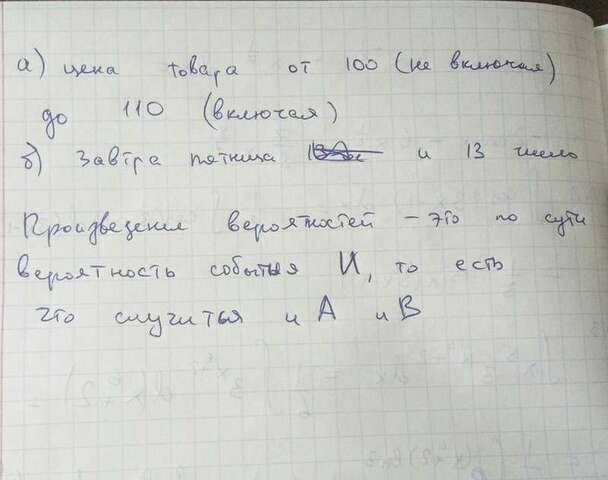 а) цена товара от 100 (не включая)
до 110 (включая)
б) Завтра пятница и 13 число
Произведение вероятностей - это по сути
вероятность события И, то есть
что случиться и А и В